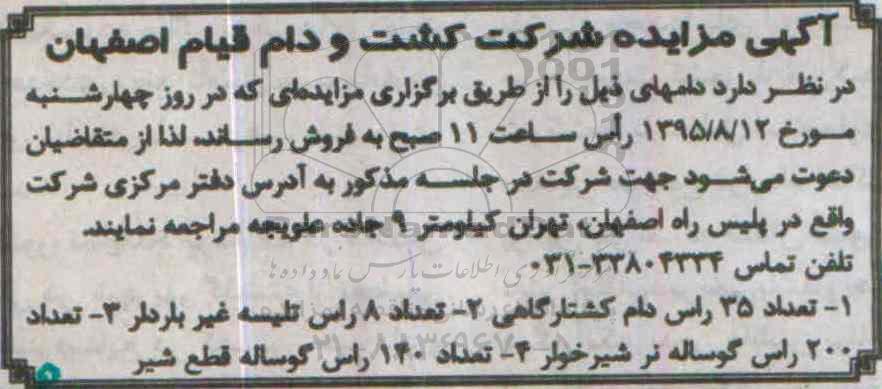 آگهی مزایده شرکت کشت و دام قیام اصفهان
در نظر دارد دامهای ذیل را از طریق برگزاری مزایده‌ای که در روز چهارشنبه
مورخ ۱۳۹۵/۸/۱۲ رأس ساعت ۱۱ صبح به فروش رساند، لذا از متقاضیان
دعوت می‌شود جهت شرکت در جلسه مذکور به آدرس دفتر مرکزی شرکت
واقع در پلیس راه اصفهان، تهران کیلومتر ۹ جاده علویجه مراجعه نمایند.
تلفن تماس ۳۳۸۰۴۳۳۴-۰۳۱
۱- تعداد ۳۵ راس دام کشتارگاهی ۲- تعداد ۸ راس تلیسه غیر باردار ۳- تعداد
۲۰۰ راس گوساله نر شیرخوار ۴- تعداد ۱۴۰ راس گوساله قطع شیر